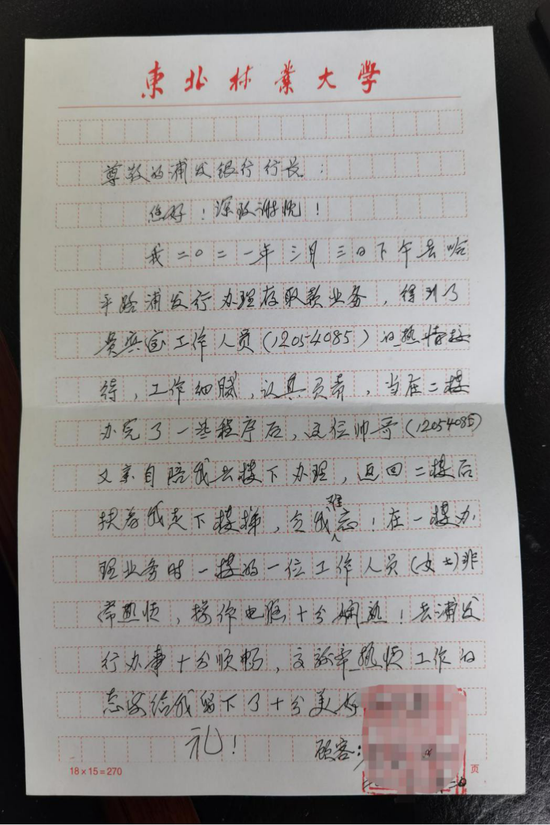 東北林業大學
尊敬的浦发银行行长:
您好!深致谢忱!
我二〇二一年三月三日下午去哈
平路浦发行办理存取款业务,得到了
贵宾室工作人员(12054085)的热情接
待,工作细腻,认真负责,当在二楼
办完了一些程序后,这位帅哥(12054085)
又亲自陪我去楼下办理,返回二楼后
扶着我走下楼梯,令我难忘!在一楼办
理业务时一楼的一位工作人员(女士)非
常热情,操作电脑十分娴熟!去浦发
行办事十分顺畅,
热情工作的
态度给我留下了十分美好
礼! 顾客:
18×15=270 页